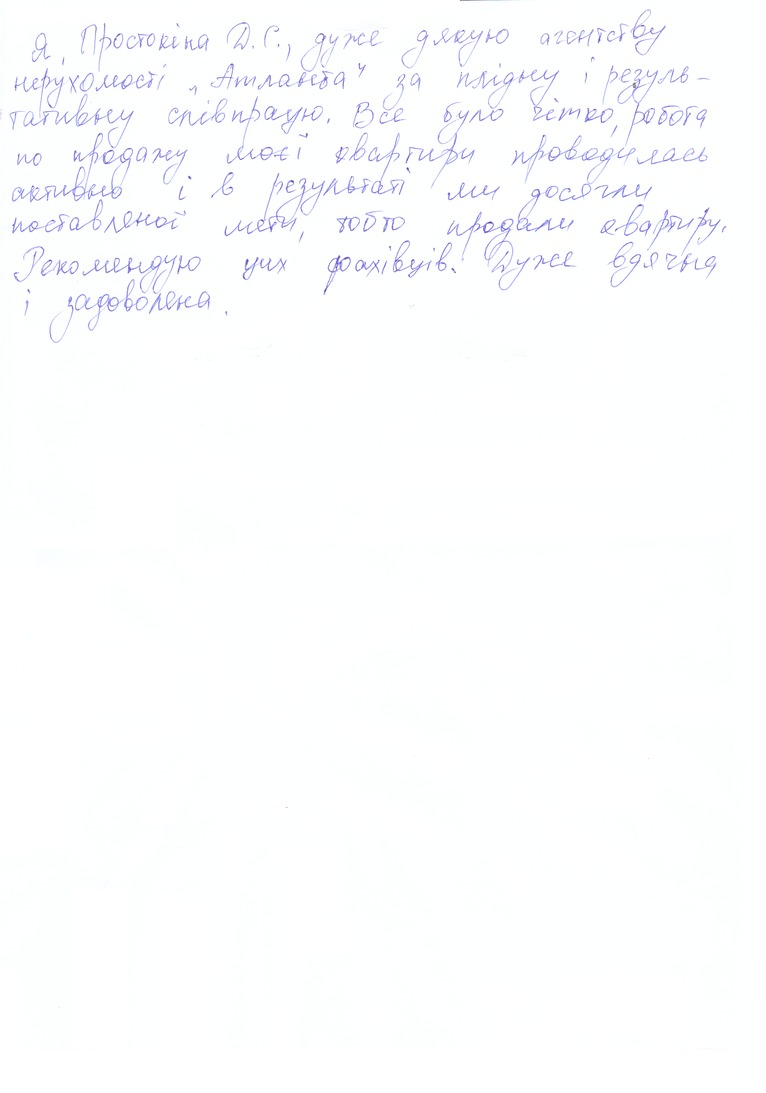 Я, Простокіна Д.С., дуже дякую агентству
нерухомості „Атланта" за плідну і резуль-
тативну співпрацю. Все було чітко, робота
по продажу моєї квартири проводилась
активно і в результаті ми досягли
поставленої мети, тобто продали квартиру.
Рекомендую цих фахівців. Дуже вдячна
і задоволена.